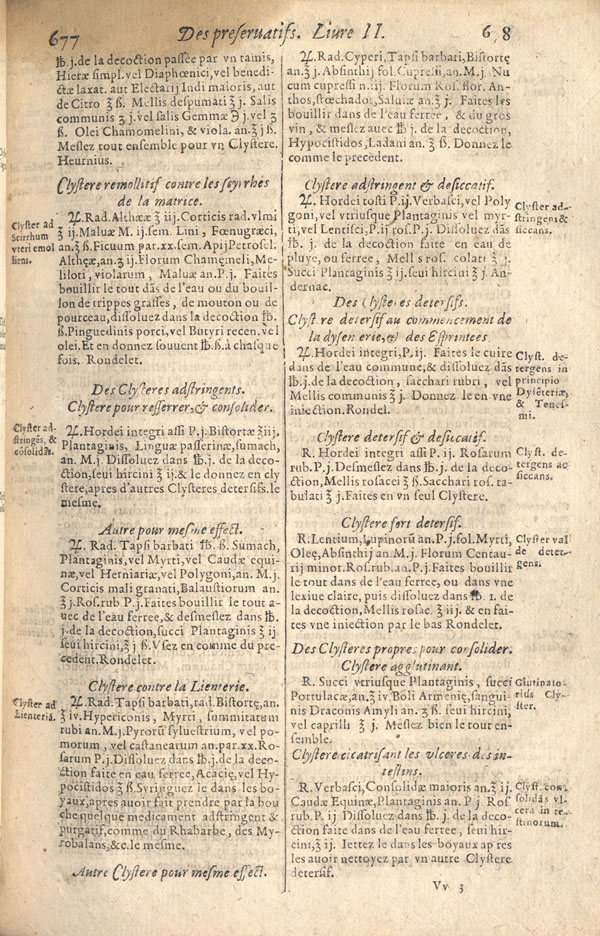 677
Des preseruatifs. Liure II.
6 8
℔.j.de la decoction passee par vn tamis,
Hieræ simpl. vel Diaphœnici, vel benedi-
ctæ laxat. aut Electarij Indi maioris, aut
de Citro ʒ ß. Mellis despumati ʒ j. Salis
communis ʒ j.vel salis Gemmæ ℈ j.vel ʒ
ß. Olei Chamomelini, & viola. an.ʒ j ß.
Meslez tout ensemble pour vn Clystere.
Heurnius.
Clystere remollitif contre les scyrrhes
de la matrice.
Clyster ad
Scirrhum
vteri emol
liens.
♃.Rad.Althææ ʒ iij.Corticis rad.vlmi
ʒ ij.Maluæ M.ij.sem. Lini, Fœnugræci,
an.ʒ ß.Ficuum par.xx.sem. Apij Petrosel.
Althęæ,an.ʒ ij.Florum Chamęmeli, Me-
liloti, violarum, Maluæ an.P.j. Faites
bouillir le tout dãs de l'eau ou du bouil-
lon de trippes grasses, de mouton ou de
pourceau, dissoluez dans la decoction ℔.
ß.Pinguedinis porci, vel Butyri recen.vel
olei. Et en donnez souuent ℔.ß.à chasque
fois. Rondelet.
Des Clysteres adstringents.
Clystere pour resserrer, & consolider.
Clyster ad-
stringẽs, &
cõsolidãs.
♃.Hordei integri assi P.j.Bistortæ ʒiij.
Plantaginis, Linguæ passerinæ, sumach,
an. M.j. Dissoluez dans ℔.j. de la deco-
ction, seui hircini ʒ ij.& le donnez en cly
stere, apres d'autres Clysteres detersifs.le
mesme.
Autre pour mesme effect.
♃. Rad. Tapsi barbati ℔. ß. Sumach,
Plantaginis, vel Myrti, vel Caudæ equi-
næ, vel Herniariæ, vel Polygoni, an. M.j.
Corticis mali granati, Balaustiorum an.
ʒ j.Ros.rub P.j.Faites bouillir le tout a-
uec de l'eau ferree, & desmeslez dans ℔
j.de la decoction, succi Plantaginis ʒ ij
seui hircini,ʒ j ß Vsez en comme du pre-
cedent.Rondelet.
Clystere contre la Lienterie.
Clyster ad
Lienteriã.
♃.Rad.Tapsi barbati,rad.Bistortę,an.
ʒ iv.Hypericonis, Myrti, summitatum
rubi an.M.j.Pyrorũ syluestrium, vel po-
morum, vel castanearum an.par.xx.Ro-
sarum P.j.Dissoluez dans ℔.j.de la deco-
ction faite en eau ferree, Acacię, vel Hy-
pocistidos ʒ ß.Syringuez le dans les bo-
yaux, apres auoir fait prendre par la bou
che quelque medicament adstringent &
purgatif, comme du Rhabarbe, des My-
robalans, &c.le mesme.
Autre Clystere pour mesme effect.
♃.Rad.Cyperi, Tapsi barbati, Bistortę
an.ʒ j.Absinthij fol.Cupressi,an.M.j. Nu
cum cupressi n.iij. Florum Ros. flor. An-
thos, stœchados, Saluiæ an.ʒ j. Faites les
bouillir dans de l'eau ferree, & du gros
vin, & meslez auec ℔ j. de la decoction,
Hypocistidos, Ladani an. ʒ ß. Donnez le
comme le precedent.
Clystere adstringent & desiccatif.
Clyster ad-
stringens &
siccans.
♃. Hordei tosti P.ij.Verbasci, vel Poly
goni, vel vtriusque Plantaginis vel myr-
ti, vel Lentisci, P.ij ros.P.j. Dissoluez dãs
℔. j. de la decoction faite en eau de
pluye, ou ferree, Mell s ros. colati ʒ j.
Succi Plantaginis ʒ ij.seui hircini ʒ j. An-
dernac.
Des Clysteres detersifs.
Clyst.re detersif au commencement de
la dysenterie, & des Esprintees.
Clyst. de-
tergens in
principio
Dysẽteriæ,
& Tenes-
mi.
♃.Hordei integri, P.ij. Faites le cuire
dans de l'eau commune, & dissoluez dãs
℔.j.de la decoction, sacchari rubri, vel
Mellis communis ʒ j. Donnez le en vne
iniection. Rondel.
Clystere detersif & desiccatif.
Clyst. de-
tergens ac
siccans.
R. Hordei integri assi P. ij. Rosarum
rub.P.j.Desmeslez dans ℔.j. de la deco-
ction, Mellis rosacei ʒ ß.Sacchari ros. ta-
bulati ʒ j.Faites en vn seul Clystere.
Clystere fort detersif.
Clyster val
de deter-
gens.
R.Lentium, lupinorũ an.P.j.fol.Myrti,
Oleę, Absinthij an.M.j. Florum Centau-
rij minor.Ros.rub.an.P.j.Faites bouillir
le tout dans de l'eau ferree, ou dans vne
lexiue claire, puis dissoluez dans ℔. 1. de
la decoction, Mellis rosac. ʒ iij. & en fai-
tes vne iniection par le bas Rondelet.
Des Clysteres propres pour consolider.
Clystere agglutinant.
Glutinato-
rius Cly-
ster.
R. Succi vtriusque Plantaginis, succi
Portulacæ, an.ʒ iv.Boli Armenię, sangui-
nis Draconis Amyli an. ʒ ß. seui hircini,
vel caprilli ʒ j. Meslez bien le tout en-
semble.
Clystere cicatrisant les vlceres des in-
testins.
Clyst. con-
solidãs vl-
cera in te-
stinorum.
R. Verbasci, Consolidæ maioris an.ʒ ij.
Caudæ Equinæ, Plantaginis an. P j Ros
rub.P. ij Dissoluez dans ℔. j. de la deco-
ction faite dans de l'eau ferree, seui hir-
cini,ʒ ij. Iettez le dans les boyaux apres
les auoir nettoyez par vn autre Clystere
detersif.
Vv 3